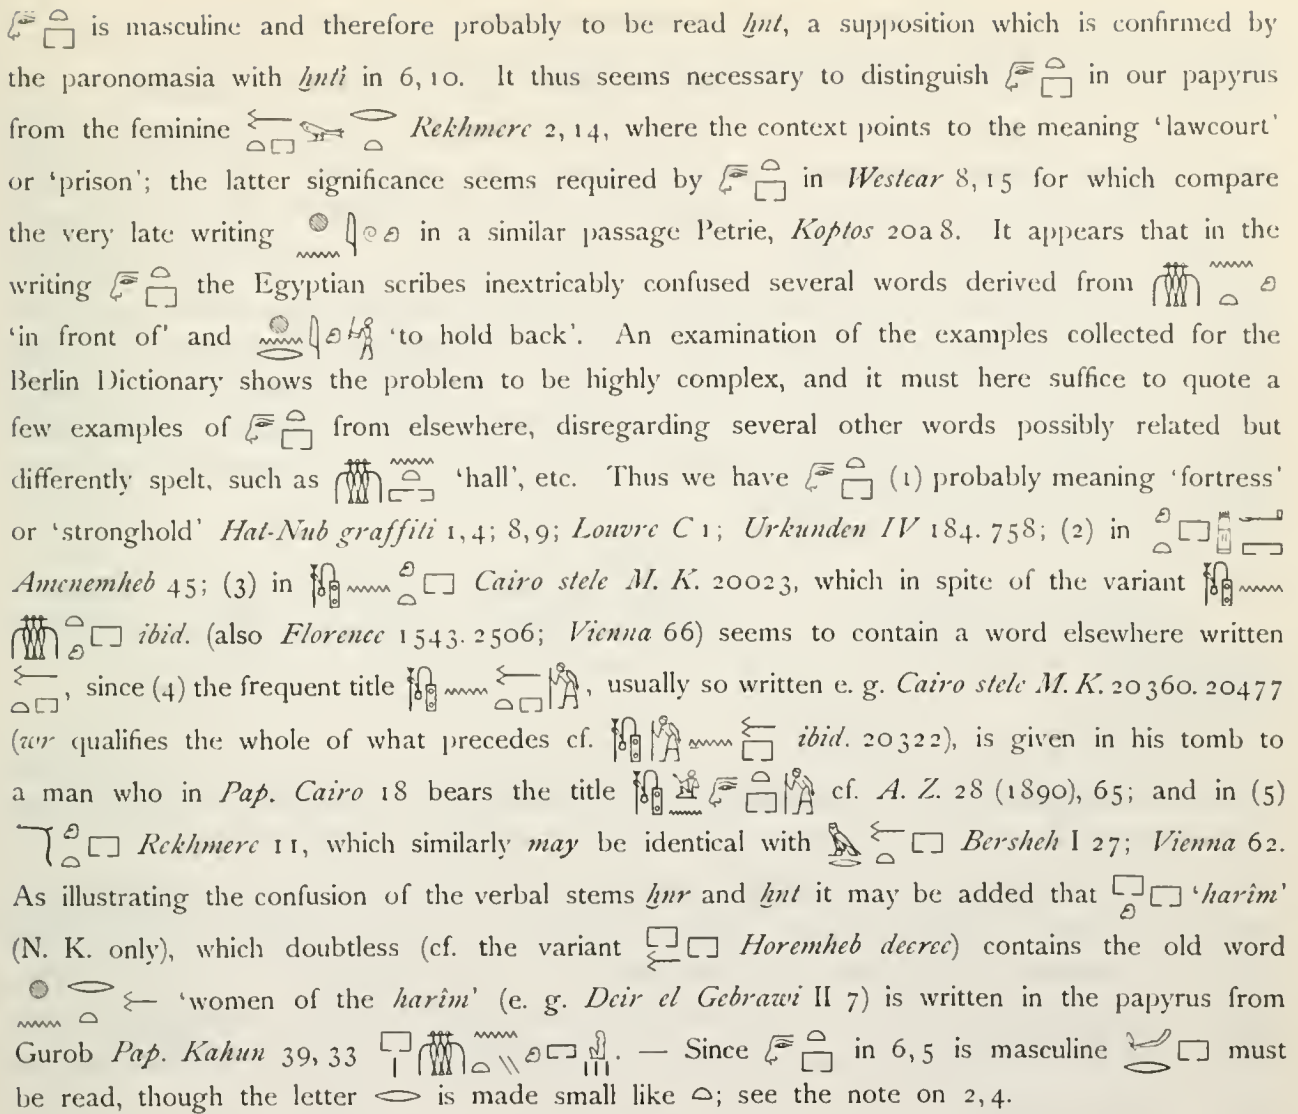 is masculine and therefore probably to be read ḫnt, a supposition which is confirmed by
the paronomasia with ḫnti in 6, 10. It thus seems necessary to distinguish in our papyrus
from the feminine Rekhmere 2, 14, where the context points to the meaning ‘lawcourt’
or ‘prison’; the latter significance seems required by in Westcar 8, 15 for which compare
the very late writing in a similar passage Petrie, Koptos 20a 8. It appears that in the
writing the Egyptian scribes inextricably confused several words derived from
‘in front of’ and ‘to hold back’. An examination of the examples collected for the
Berlin Dictionary shows the problem to be highly complex, and it must here suffice to quote a
few examples of from elsewhere, disregarding several other words possibly related but
differently spelt, such as ‘hall’, etc. Thus we have (1) probably meaning ‘fortress’
or ‘stronghold’ Hat-Nub graffiti 1, 4; 8, 9; Louvre C 1; Urkunden IV 184. 758; (2) in
Amenemheb 45; (3) in Cairo stele M. K. 20023, which in spite of the variant
ibid. (also Florence 1543. 2506; Vienna 66) seems to contain a word elsewhere written
, since (4) the frequent title , usually so written e. g. Cairo stele M. K. 20360. 20477
(wr qualifies the whole of what precedes cf. ibid. 20322), is given in his tomb to
a man who in Pap. Cairo 18 bears the title cf. A. Z. 28 (1890), 65; and in (5)
Rekhmere 11, which similarly may be identical with Bersheh I 27; Vienna 62.
As illustrating the confusion of the verbal stems ḫnr and ḫnt it may be added that ‘harîm’
(N. K. only), which doubtless (cf. the variant Horemheb decree) contains the old word
‘women of the harîm’ (e. g. Deir el Gebrawi II 7) is written in the papyrus from
Gurob Pap. Kahun 39, 33 . — Since in 6, 5 is masculine must
be read, though the letter is made small like ; see the note on 2, 4.